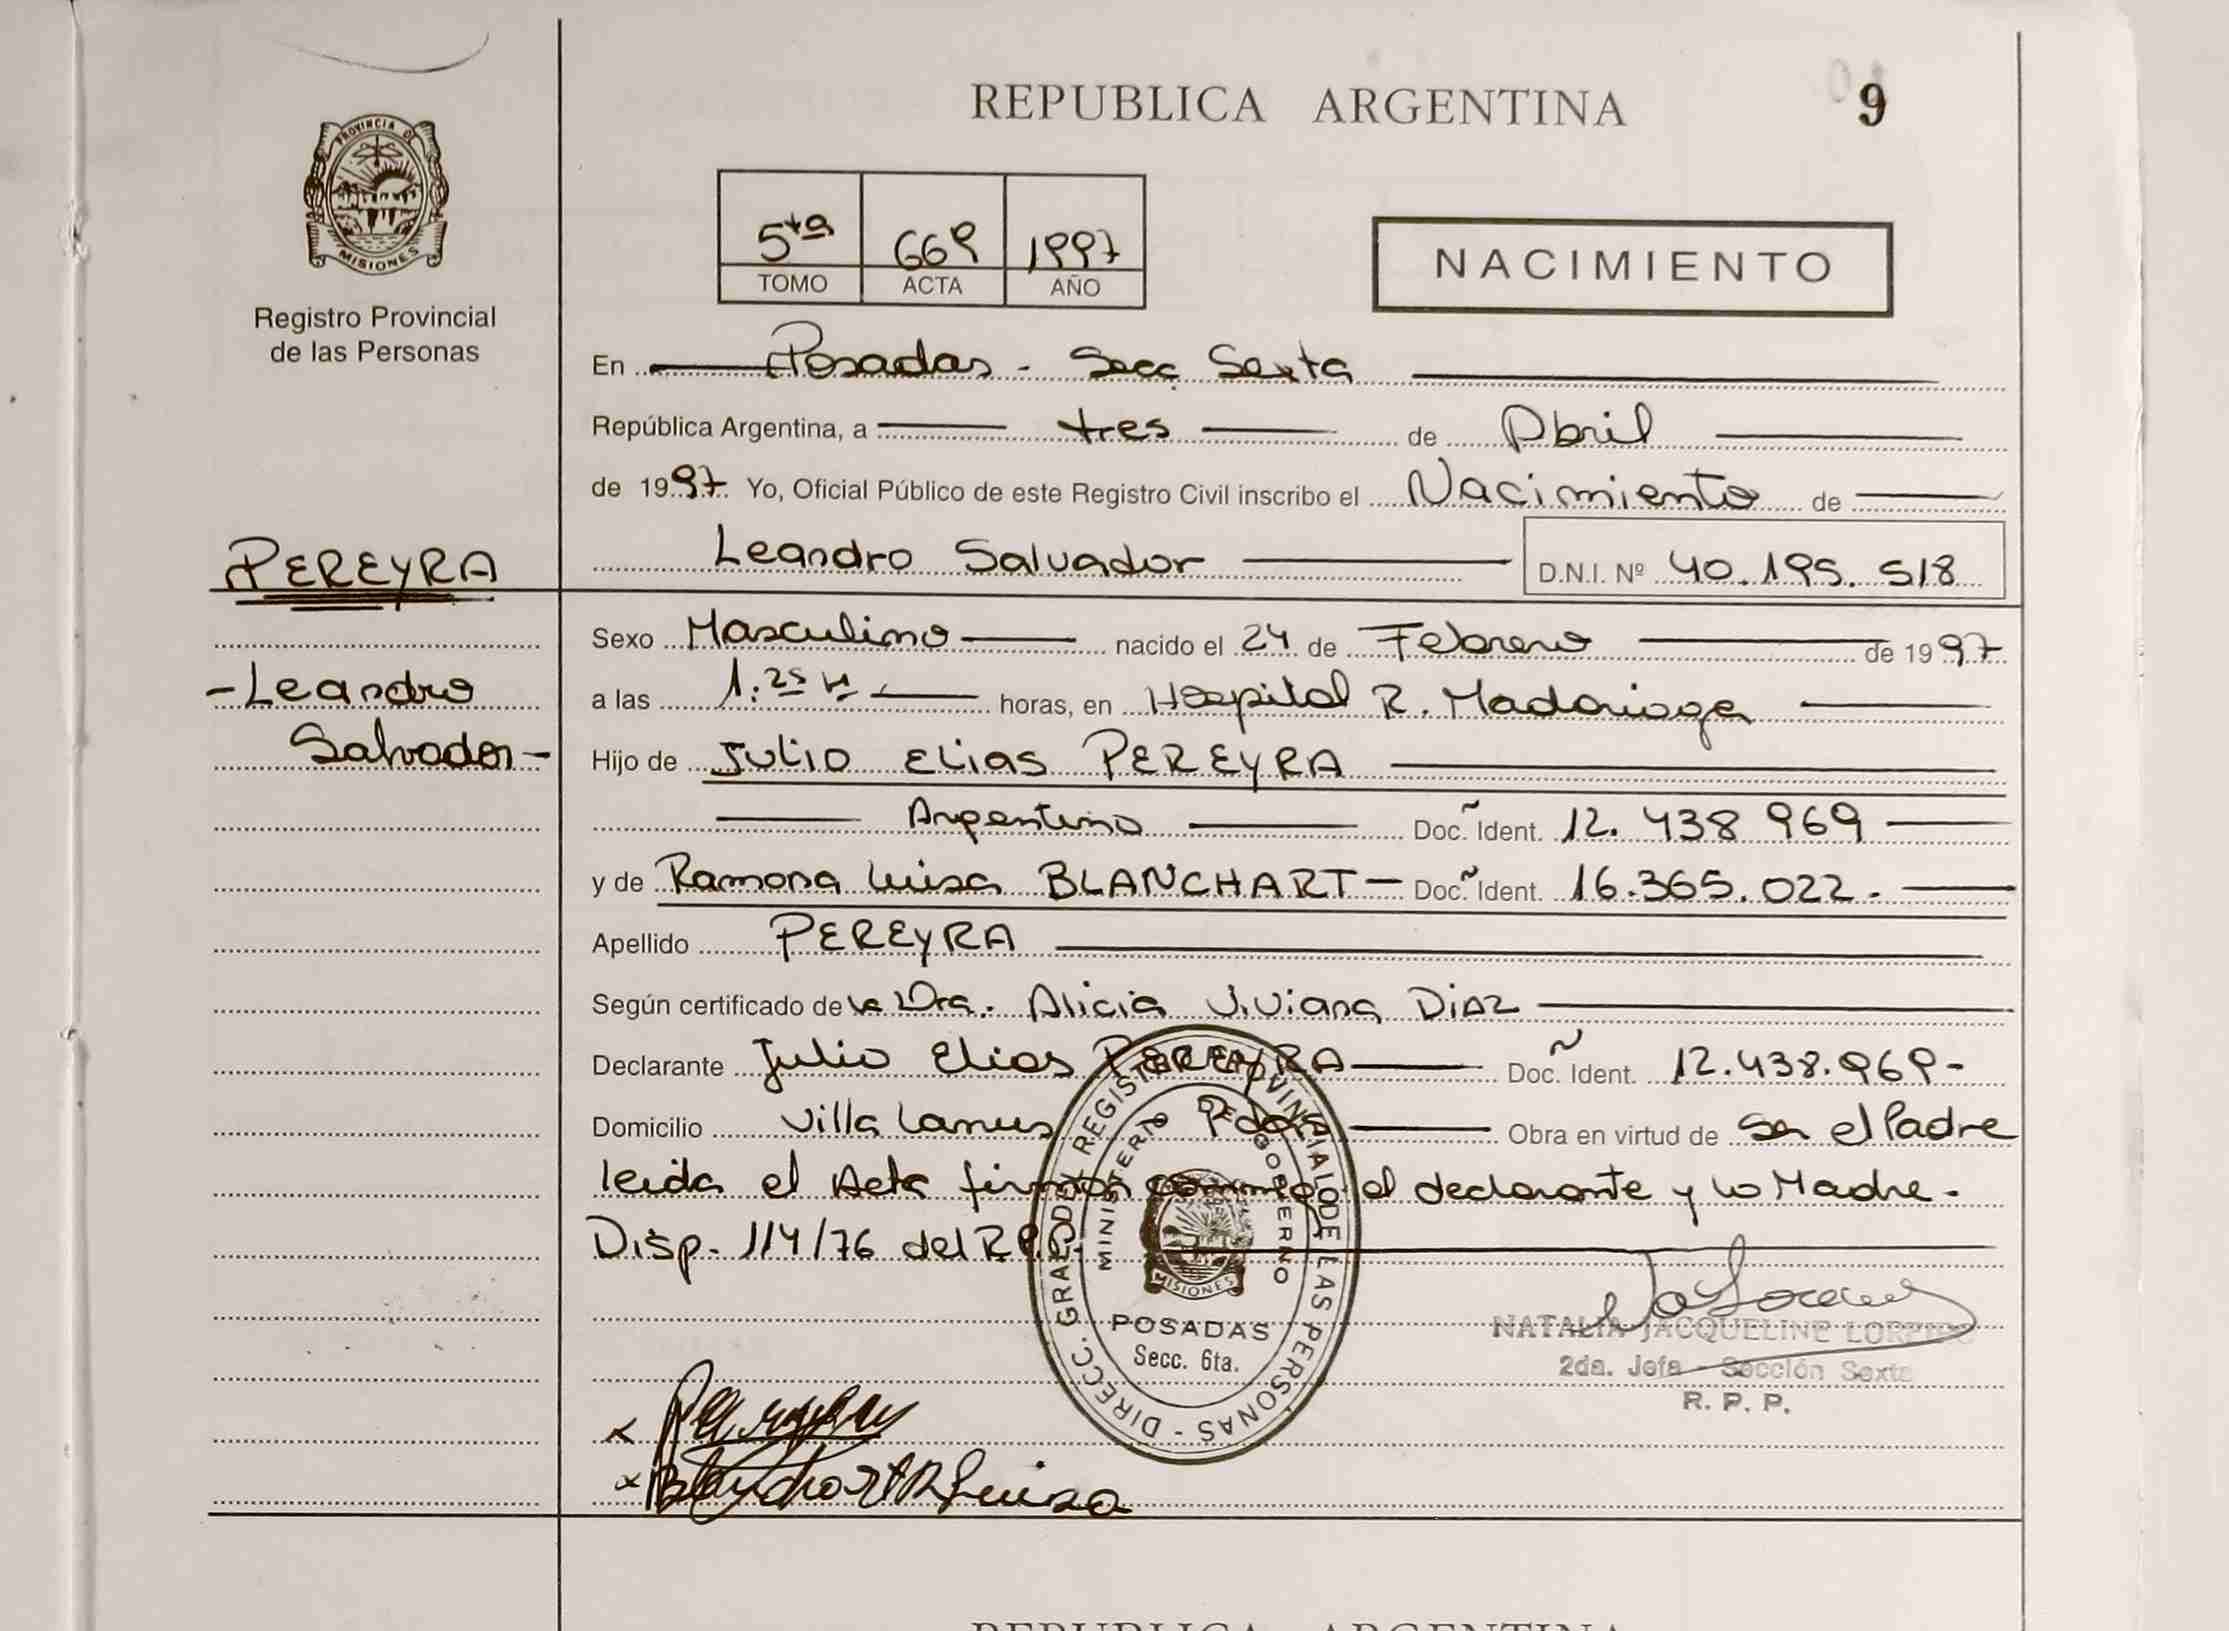 REPUBLICA ARGENTINA
9
PROVINCIA DE
MISIONES
Registro Provincial
de las Personas
5ta 669 1997
TOMO ACTA AÑO
NACIMIENTO
En Posadas - Secc Sexta
República Argentina, a tres de Abril
de 1997 Yo, Oficial Público de este Registro Civil inscribo el Nacimiento de
Leandro Salvador D.N.I. Nº 40.195.518
PEREYRA
Sexo Masculino nacido el 24 de Febrero de 1997
- Leandro
Salvador -
a las 1:25 H horas, en Hospital R. Madariaga
Hijo de Julio Elias PEREYRA
Argentino Doc. Ident. 12.438.969
y de Ramona Luisa BLANCHART - Doc. Ident. 16.365.022.
Apellido PEREYRA
Según certificado de la Dra. Alicia Viviana Diaz
Declarante Julio Elias PEREYRA Doc. Ident. 12.438.969-
Domicilio Villa Lanus Pdas Obra en virtud de ser el Padre
leida el Acta firman conmigo el declarante y la Madre -
Disp. 114/76 del R.P.P.
DIRECC. GRAL. DEL REGISTRO PROVINCIAL DE LAS PERSONAS -
MINISTERIO DE GOBIERNO
MISIONES
POSADAS
Secc. 6ta.
NATALIA JACQUELINE
2da. Jefa - Sección Sexta
R. P. P.
x
x Blanchart R Luisa
REPUBLICA ARGENTINA